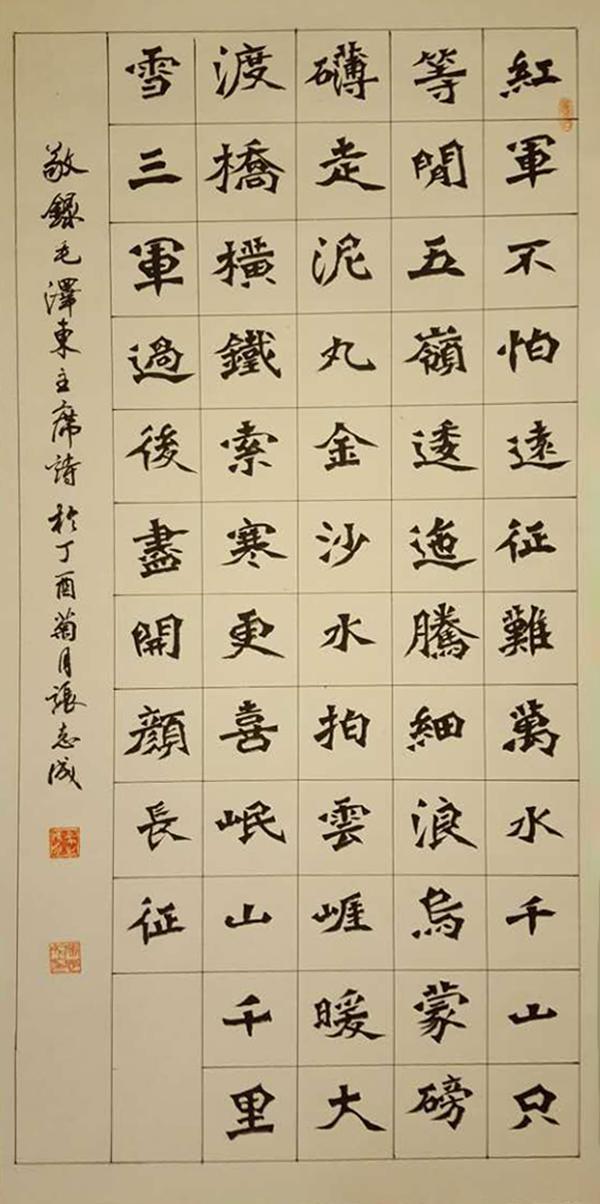 紅軍不怕遠征難萬水千山只
等閒五嶺逶迤騰細浪烏蒙磅
礴走泥丸金沙水拍雲崕暖大
渡橋橫鐵索寒更喜岷山千里
雪三軍過後盡開顏長征
敬錄毛澤東主席詩於丁酉菊月張志成